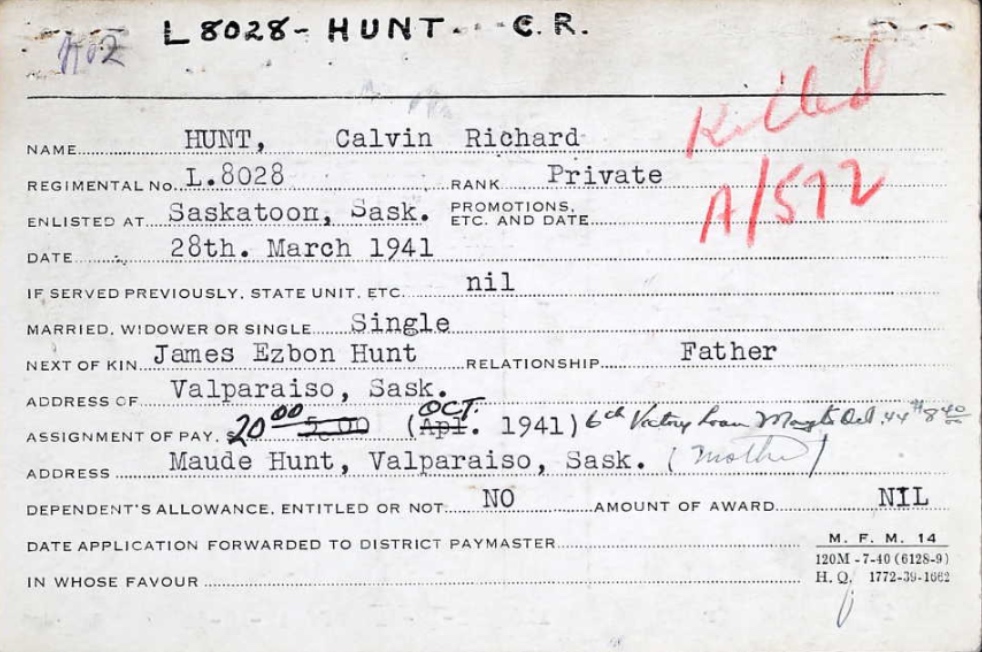 L 8028 - HUNT. C. R.
Killed
A/572
NAME HUNT, Calvin Richard
REGIMENTAL No. L.8028 RANK Private
ENLISTED AT Saskatoon, Sask. PROMOTIONS, ETC. AND DATE
DATE 28th. March 1941
IF SERVED PREVIOUSLY, STATE UNIT, ETC. nil
MARRIED, WIDOWER OR SINGLE Single
NEXT OF KIN James Ezbon Hunt RELATIONSHIP Father
ADDRESS OF Valparaiso, Sask.
ASSIGNMENT OF PAY, 20 00 5.00 (Apl. OCT. 1941) 6th Victory Loan May to Oct. 44 $8 40
ADDRESS Maude Hunt, Valparaiso, Sask. (Mother)
DEPENDENT'S ALLOWANCE, ENTITLED OR NOT NO AMOUNT OF AWARD NIL
DATE APPLICATION FORWARDED TO DISTRICT PAYMASTER
IN WHOSE FAVOUR
M. F. M. 14
120M - 7-40 (6128-9)
H. Q. 1772-39-1662